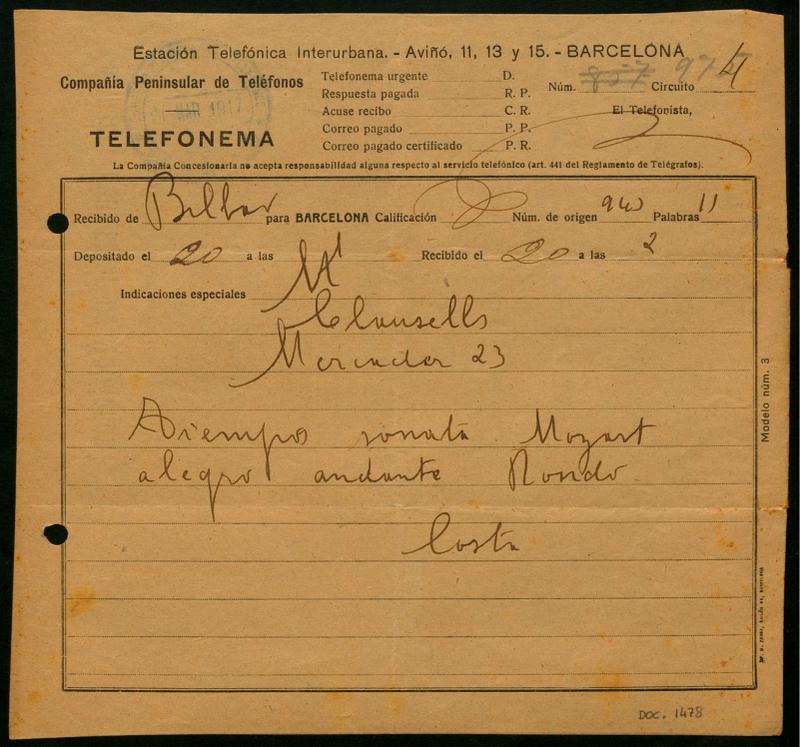 Estación Telefónica Interurbana. - Aviñó, 11, 13 y 15. - BARCELONA
Compañía Peninsular de Teléfonos
MAR 1917
TELEFONEMA
Telefonema urgente D.
Respuesta pagada R. P.
Acuse recibo C. R.
Correo pagado P. P.
Correo pagado certificado P. R.
Núm. 857 Circuito 4
El Telefonista,
La Compañía Concesionaria no acepta responsabilidad alguna respecto al servicio telefónico (art. 441 del Reglamento de Telégrafos).
Recibido de Bilbao para BARCELONA Calificación Núm. de origen Palabras 11
Depositado el 20 a las Recibido el 20 a las 2
Indicaciones especiales
Clausells
Mercader 23
Tiempos sonata Mozart
alegro andante Rondo
Costa
Modelo núm. 3
DOC. 1478